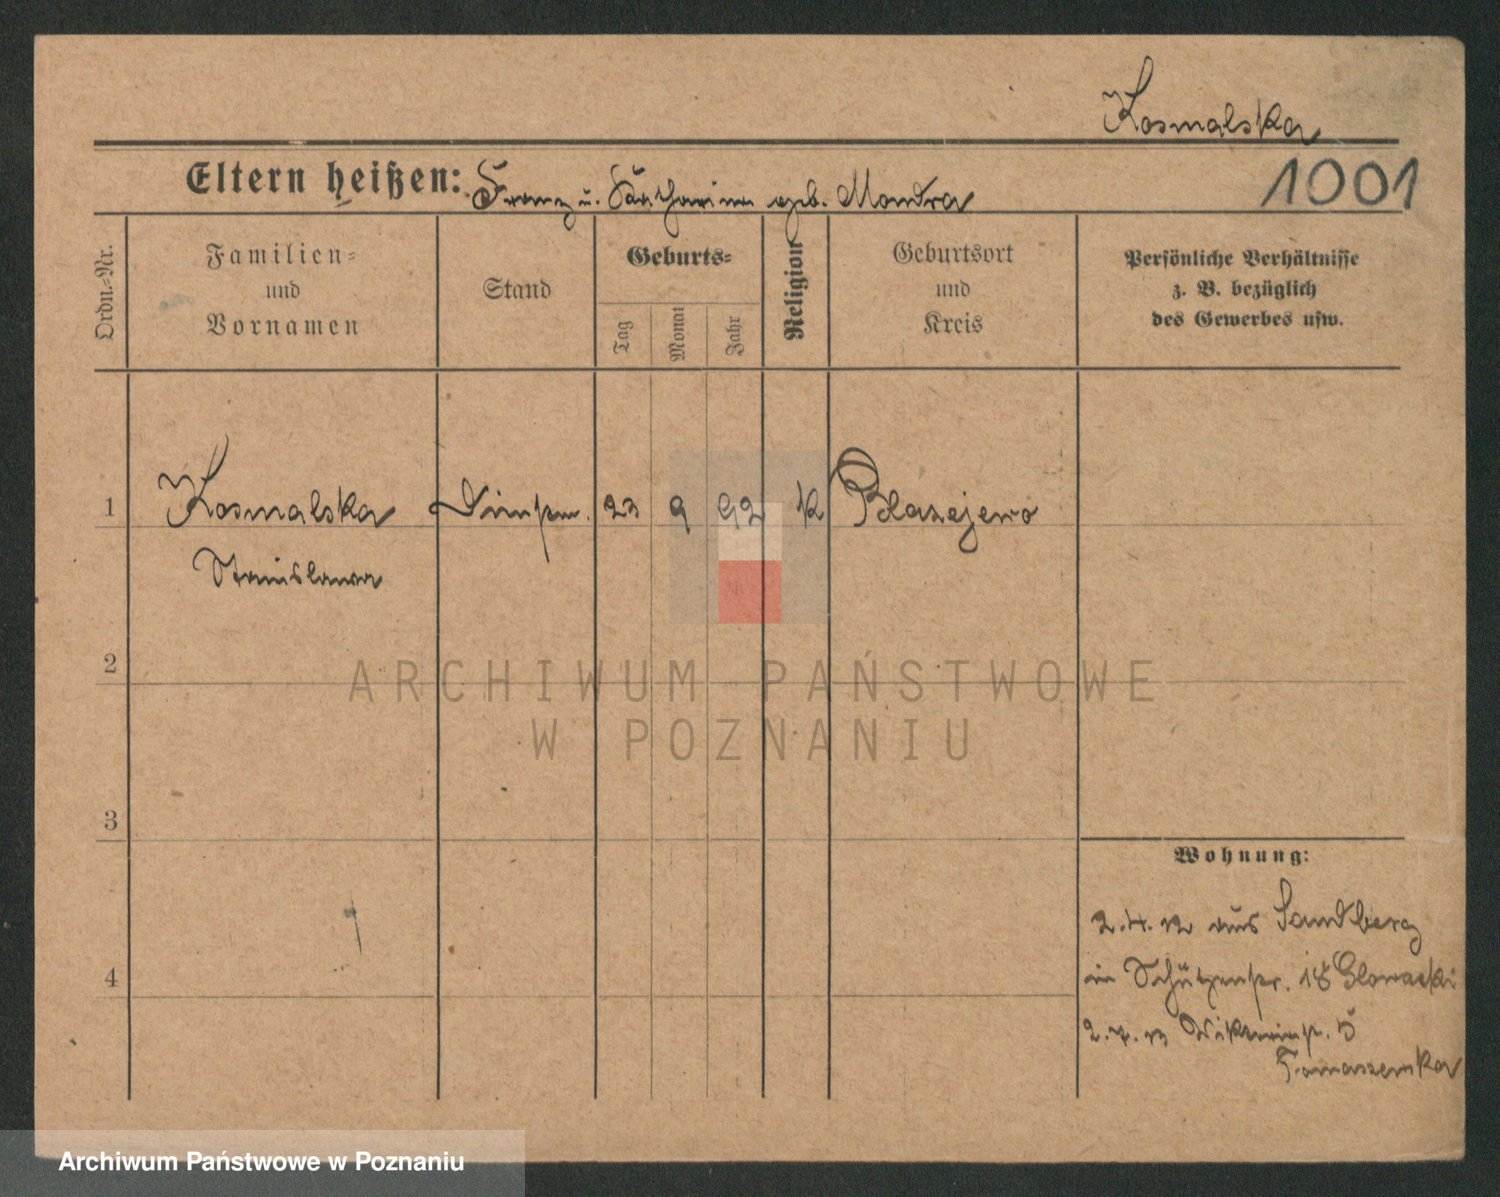 Kosmalska
Eltern heißen: Franz u. Katharina geb. Mondra
1001
Ordn.=Nr.
Familien=
und
Vornamen
Stand
Geburts=
Tag
Monat
Jahr
Religion
Geburtsort
und
Kreis
Persönliche Verhältnisse
z. B. bezüglich
des Gewerbes usw.
1
Kosmalska
Stanislawa
23 9 92 k
Blazejewo
2
ARCHIWUM PAŃSTWOWE
W POZNANIU
3
Wohnung:
2.4.12 aus Sandberg
in Schützenstr. 18 Glowacki
4
2.7.13 Viktoriastr. 5
Tomaszewska
Archiwum Państwowe w Poznaniu